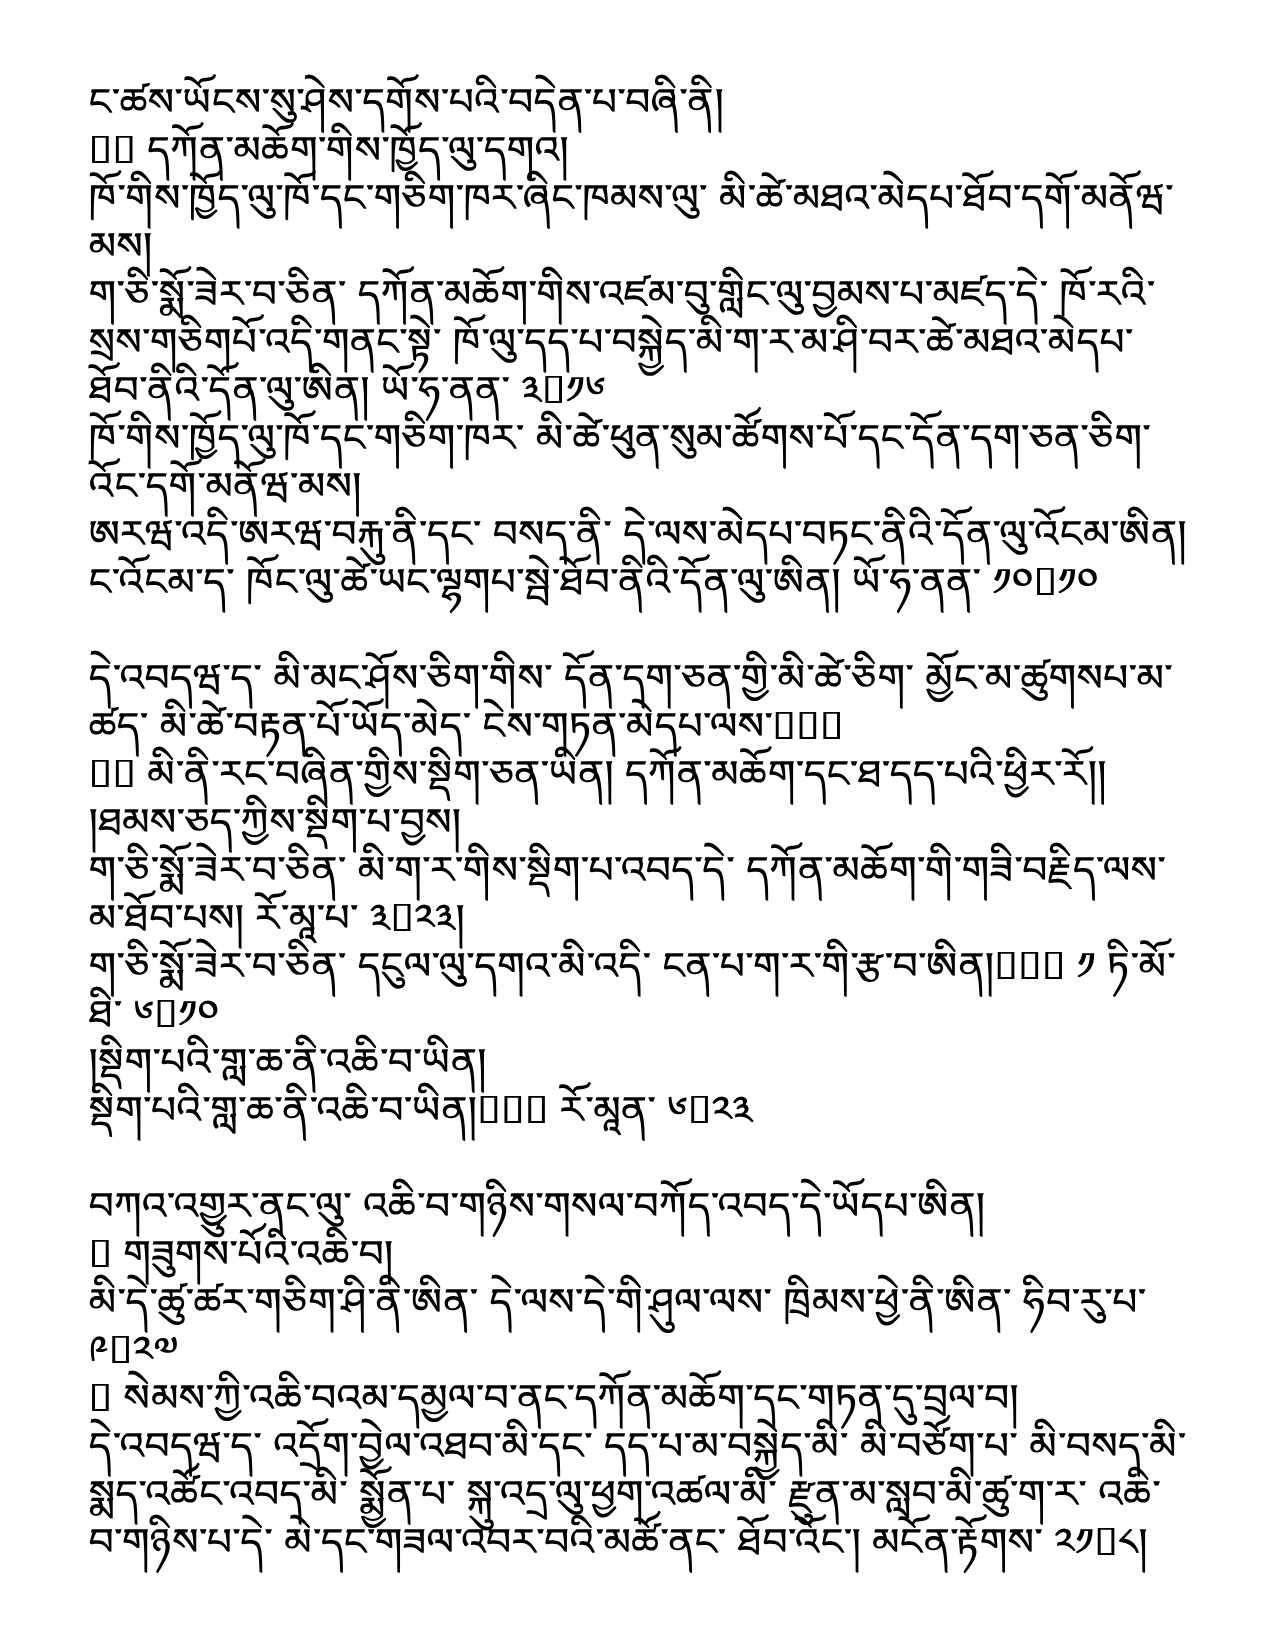 ང་ཚས་ཡོངས་སུ་ཤེས་དགོས་པའི་བདེན་པ་བཞི་ནི།
དཀོན་མཆོག་གིས་ཁྱོད་ལུ་དགའ།
ཁོ་གིས་ཁྱོད་ལུ་ཁོ་དང་གཅིག་ཁར་ཞིང་ཁམས་ལུ་ མི་ཚེ་མཐའ་མེདཔ་ཐོབ་དགོ་མནོཝ་
མས།
ག་ཅི་སྨོ་ཟེར་བ་ཅིན་ དཀོན་མཆོག་གིས་འཛམ་བུ་གླིང་ལུ་བྱམས་པ་མཛད་དེ་ ཁོ་རའི་
སྲས་གཅིགཔོ་འདི་གནང་སྟེ་ ཁོ་ལུ་དད་པ་བསྐྱེད་མི་ག་ར་མ་ཤི་བར་ཚེ་མཐའ་མེདཔ་
ཐོབ་ནིའི་དོན་ལུ་ཨིན། ཡོ་ཧ་ནན་ ༣ ༡༦
ཁོ་གིས་ཁྱོད་ལུ་ཁོ་དང་གཅིག་ཁར་ མི་ཚེ་ཕུན་སུམ་ཚོགས་པོ་དང་དོན་དག་ཅན་ཅིག་
འོང་དགོ་མནོཝ་མས།
ཨརཝ་འདི་ཨརཝ་བརྐུ་ནི་དང་ བསད་ནི་ དེ་ལས་མེདཔ་བཏང་ནིའི་དོན་ལུ་འོངམ་ཨིན།
ང་འོངམ་ད་ ཁོང་ལུ་ཚེ་ཡང་ལྷགཔ་སྦེ་ཐོབ་ནིའི་དོན་ལུ་ཨིན། ཡོ་ཧ་ནན་ ༡༠ ༡༠
དེ་འབདཝ་ད་ མི་མང་ཤོས་ཅིག་གིས་ དོན་དག་ཅན་གྱི་མི་ཚེ་ཅིག་ མྱོང་མ་ཚུགསཔ་མ་
ཚད་ མི་ཚེ་བརྟན་པོ་ཡོད་མེད་ ངེས་གཏན་མེདཔ་ལས་
མི་ནི་རང་བཞིན་གྱིས་སྡིག་ཅན་ཡིན། དཀོན་མཆོག་དང་ཐ་དད་པའི་ཕྱིར་རོ།།
།ཐམས་ཅད་ཀྱིས་སྡིག་པ་བྱས།
ག་ཅི་སྨོ་ཟེར་བ་ཅིན་ མི་ག་ར་གིས་སྡིག་པ་འབད་དེ་ དཀོན་མཆོག་གི་གཟི་བརྗིད་ལས་
མ་ཐོབ་པས། རོ་མཱ་པ་ ༣ ༢༣།
ག་ཅི་སྨོ་ཟེར་བ་ཅིན་ དངུལ་ལུ་དགའ་མི་འདི་ ངན་པ་ག་ར་གི་རྩ་བ་ཨིན། ༡ ཏི་མོ་
ཐི་ ༦ ༡༠
།སྡིག་པའི་གླ་ཆ་ནི་འཆི་བ་ཡིན།
སྡིག་པའི་གླ་ཆ་ནི་འཆི་བ་ཡིན། རོ་མཱན་ ༦ ༢༣
བཀའ་འགྱུར་ནང་ལུ་ འཆི་བ་གཉིས་གསལ་བཀོད་འབད་དེ་ཡོདཔ་ཨིན།
གཟུགས་པོའི་འཆི་བ།
མི་དེ་ཚུ་ཚར་གཅིག་ཤི་ནི་ཨིན་ དེ་ལས་དེ་གི་ཤུལ་ལས་ ཁྲིམས་ཕྱེ་ནི་ཨིན་ ཧིབ་རུ་པ་
༩ ༢༧
སེམས་ཀྱི་འཆི་བའམ་དམྱལ་བ་ནང་དཀོན་མཆོག་དང་གཏན་དུ་བྲལ་བ།
དེ་འབདཝ་ད་ འདྲོག་བྱེལ་འཐབ་མི་དང་ དད་པ་མ་བསྐྱེད་མི་ མི་བཙོག་པ་ མི་བསད་མི་
སྨད་འཚོང་འབད་མི་ སྨྱོན་པ་ སྐུ་འདྲ་ལུ་ཕྱག་འཚལ་མི་ རྫུན་མ་སླབ་མི་ཚུ་ག་ར་ འཆི་
བ་གཉིས་པ་དེ་ མེ་དང་གཟལ་འབར་བའི་མཚོ་ནང་ ཐོབ་འོང་། མངོན་རྟོགས་ ༢༡ ༨།